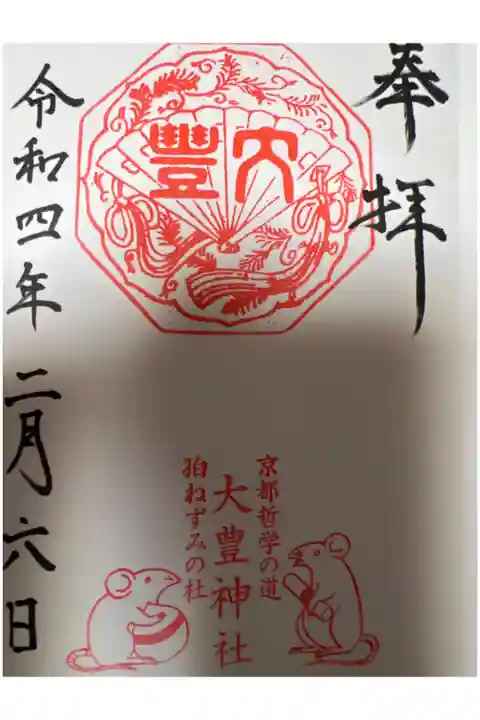 奉拝
大豐
京都哲学の道
大豊神社
狛ねずみの社
令和四年二月六日